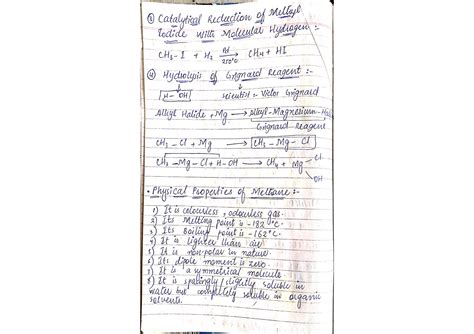 ③ Catalytical Reduction of Methyl
Iodide With Molecular Hydrogen :-
CH₃-I + H₂ Pd 250°C → CH₄ + HI
④ Hydrolysis of Grignard Reagent :-
H-OH Scientist :- Victor Grignard
Alkyl Halide + Mg → Alkyl-Magnesium-
Grignard Reagent
CH₃-Cl + Mg → CH₃-Mg-Cl
CH₃-Mg-Cl + H-OH → CH₄ + Mg Cl
OH
• Physical Properties of Methane :-
1) It is colourless, odourless gas.
2) Its Melting point is -182 °C.
3) Its Boiling point is -162°C.
4) It is lighter than air
5) It is non-polar in nature.
6) Its dipole moment is zero.
7) It is a symmetrical molecule.
8) It is sparingly/slightly soluble in
water but completely soluble in organic
solvents.